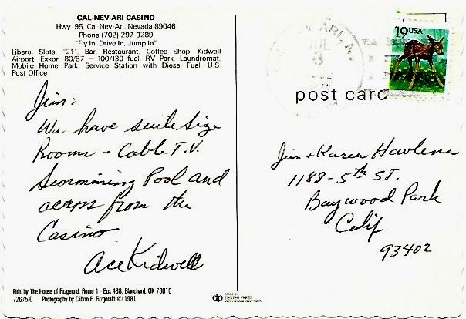 CAL-NEV-ARI CASINO
Hwy. 95, Cal Nev Ari, Nevada 89046
Phone (702) 297-
"Fly In, Drive In, Jump In"
Libera Slots "21", Bar, Restaurant, Coffee Shop, Kidwell
Airport Exxon 80/87 - 100/130 fuel, RV Park, Laundromat,
Mobile Home Park, Service Station with Diesel Fuel, U.S.
Post Office
Jim:
We have suite size
Rooms - Cable T.V.
Swimming Pool and
across from the
Casino
Ace Kidwell
Pub. by The House of Fitzgerald, Route 1 - Box 438, Blanchard, OK 73010
Photography by Fitzgerald © 1981
19 USA
post card
Jim & Karen
1188 - 5th ST.
Baywood Park
Calif
93402